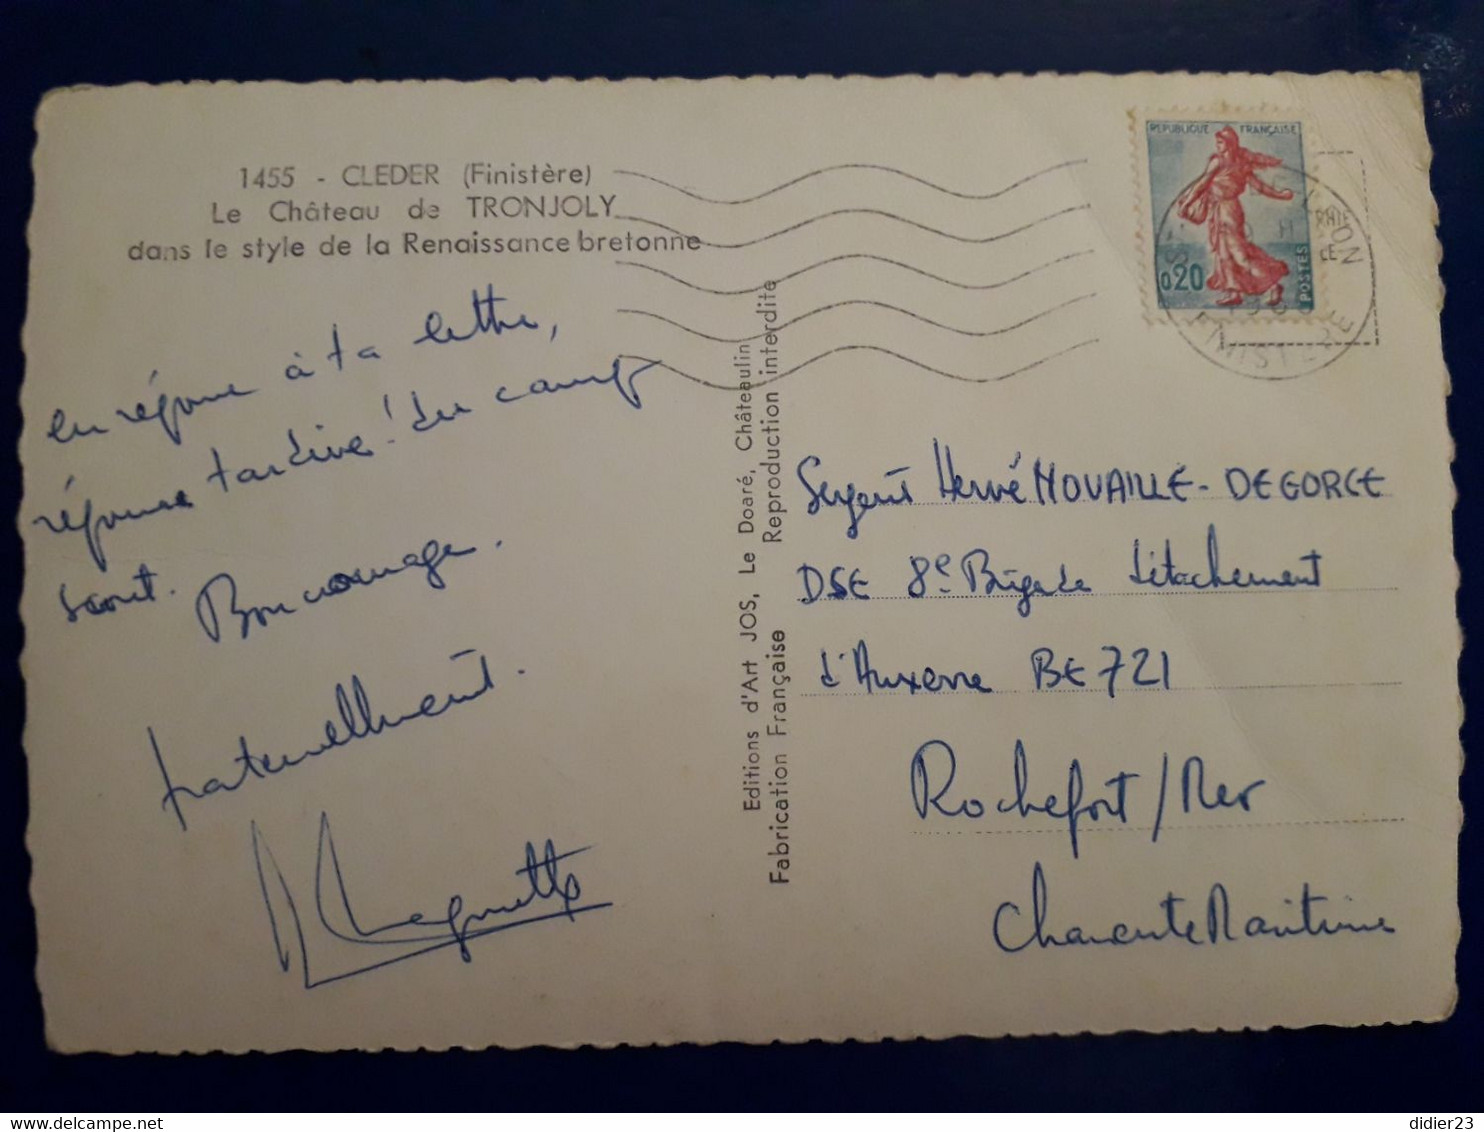 1455 - CLEDER (Finistère)
Le Château de TRONJOLY
dans le style de la Renaissance bretonne
en réponse à ta lettre,
réponse tardive! du camp
scout.
Bon courage.
fraternellement.
Editions d'Art JOS, Le Doaré, Châteaulin
Fabrication Française Reproduction interdite
REPUBLIQUE FRANÇAISE
0,20
POSTES
FINISTERE
Sergent Hervé NOUAILLE-DEGORCE
DSE 8e Brigade détachement
d'Auxerre BE 721
Rochefort/Mer
Charente Maritime
didier23